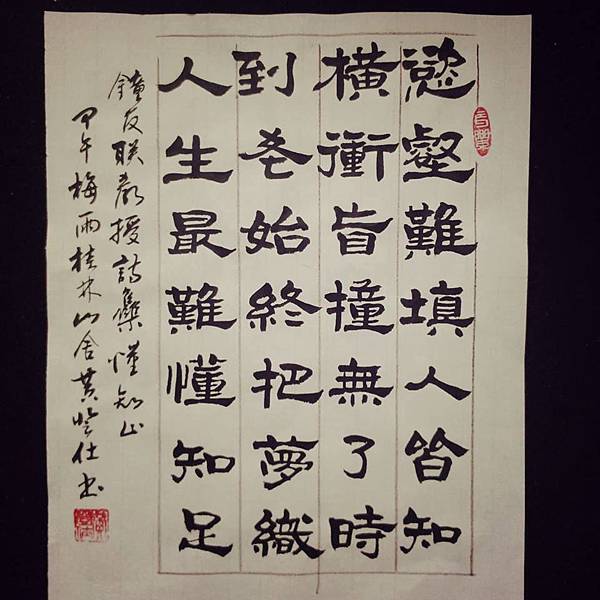 慾壑難填人皆知
橫衝盲撞無了時
到老始終把夢織
人生最難懂知足
鐘友聯教授詩集懂知止
甲午梅雨桂林山舍黃登仕书